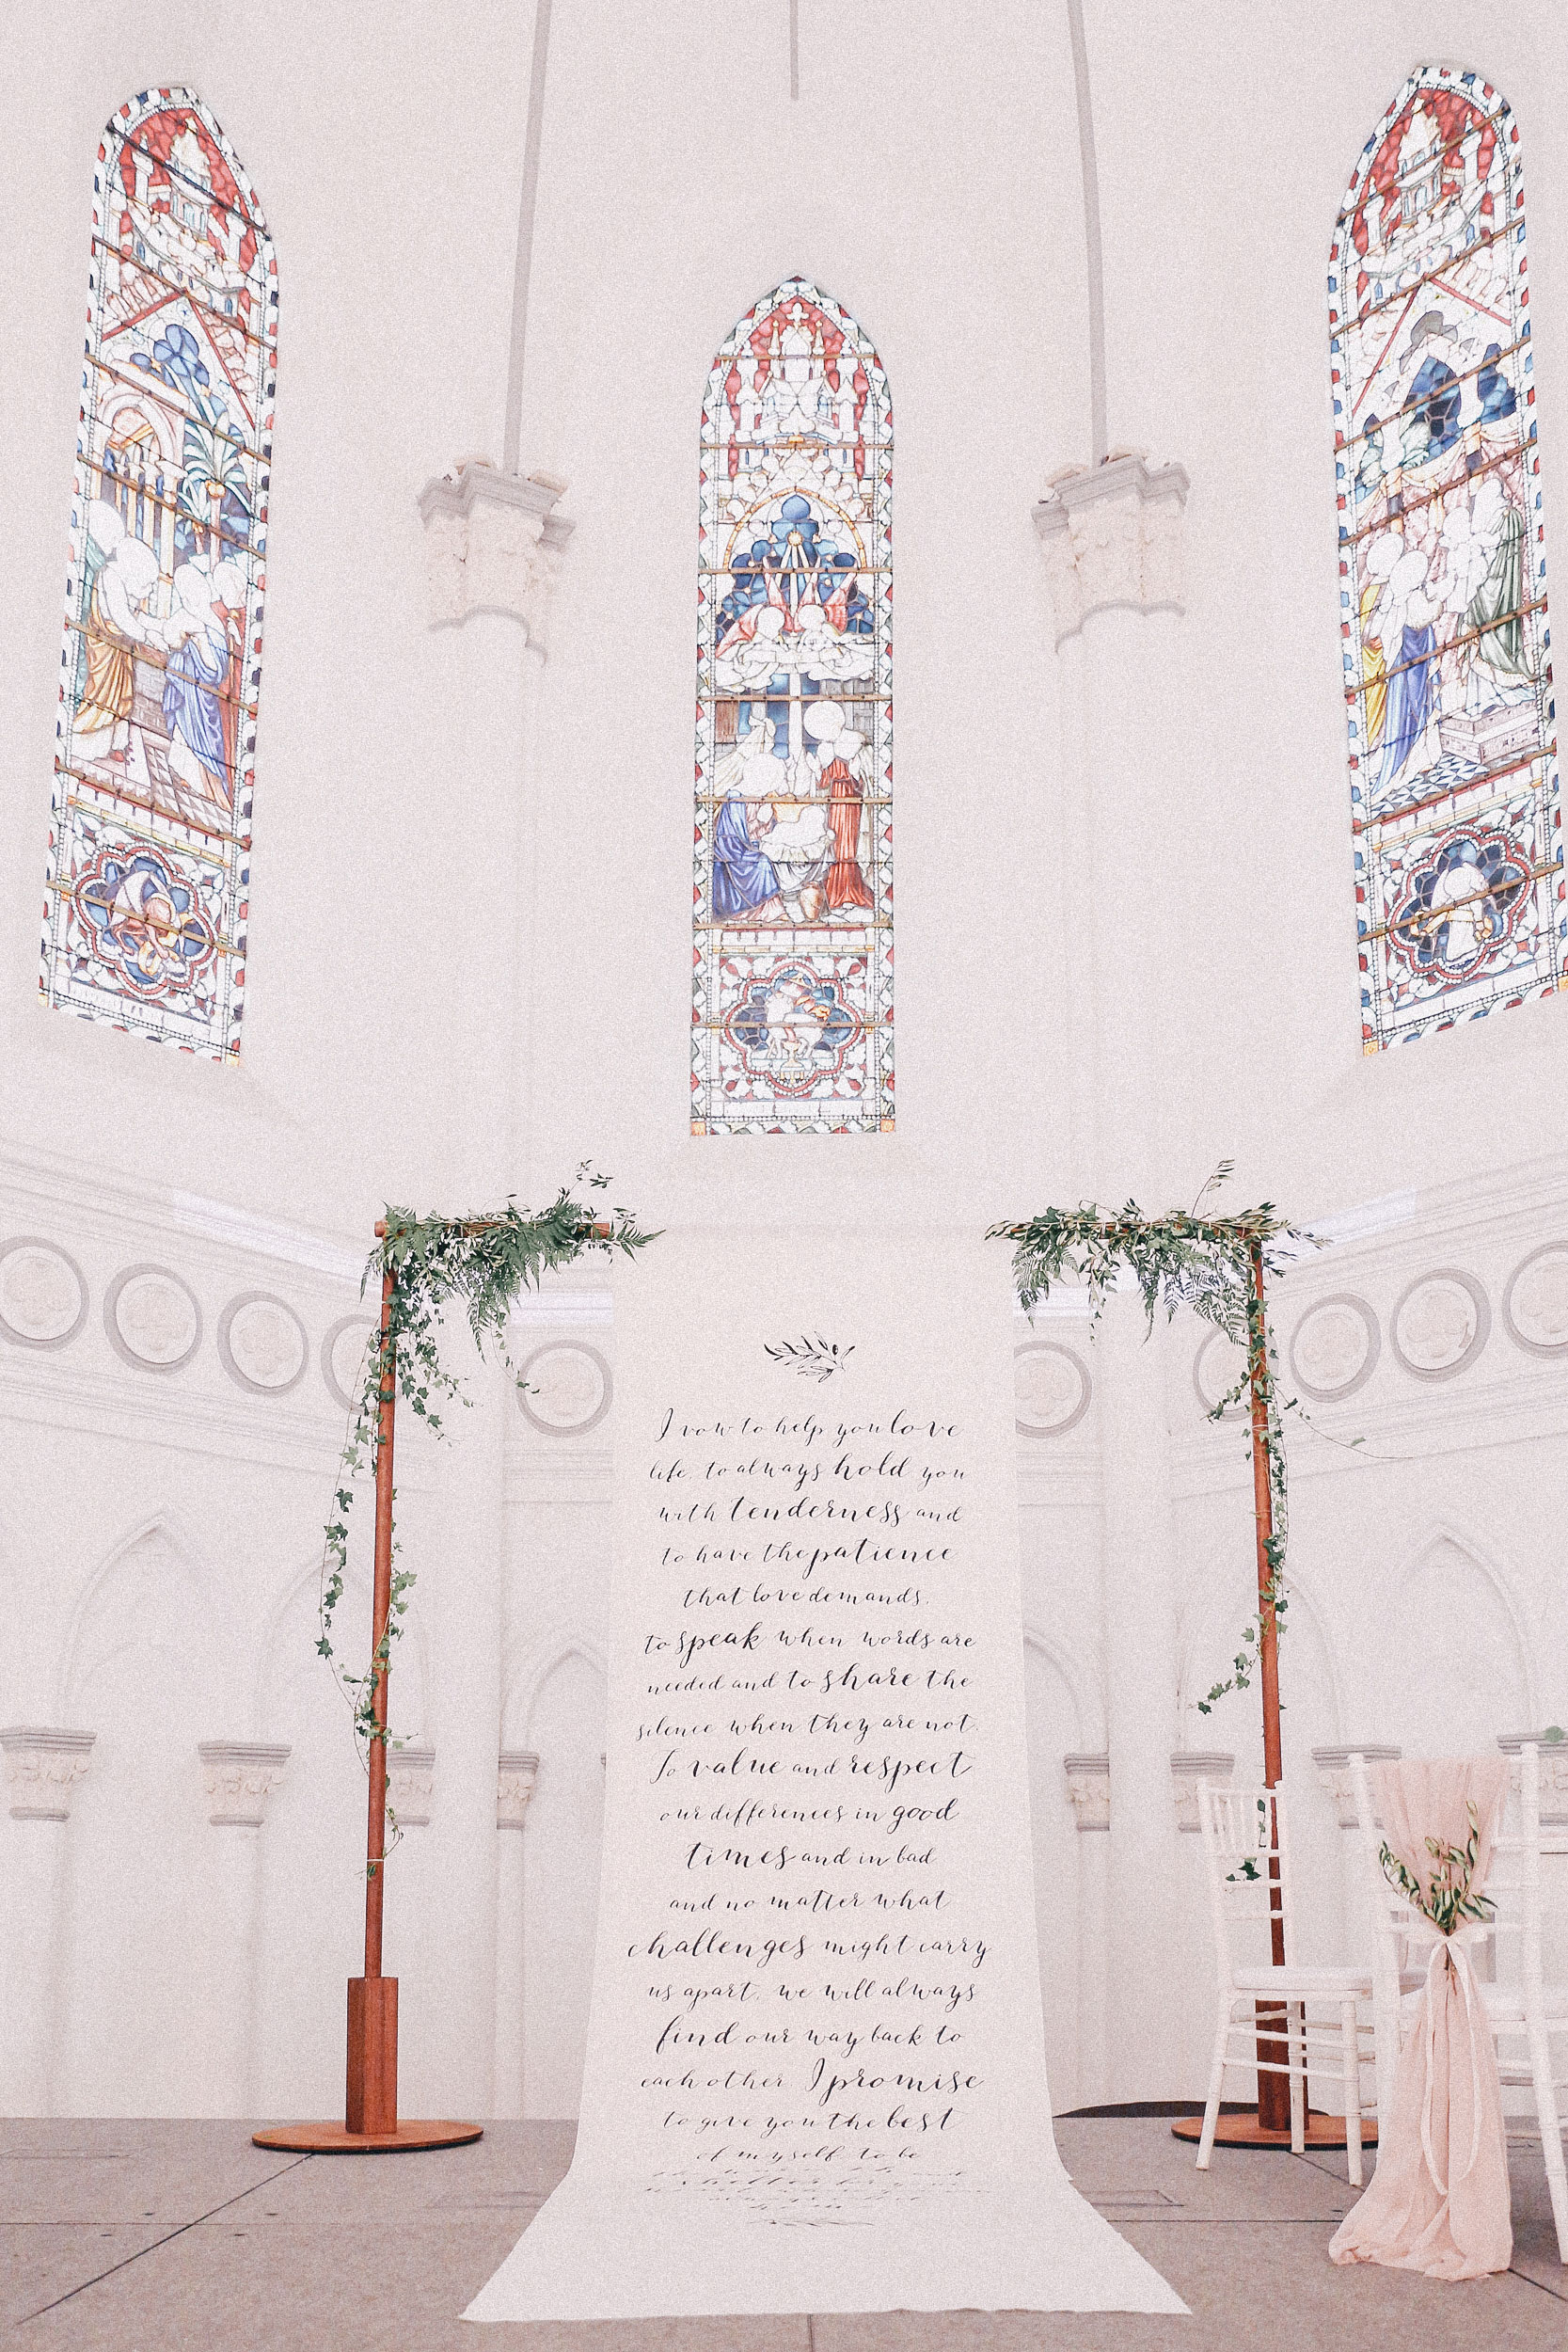 I vow to help you love
life, to always hold you
with tenderness and
to have the patience
that love demands,
to speak when words are
needed and to share the
silence when they are not.
To value and respect
our differences in good
times and in bad
and no matter what
challenges might carry
us apart, we will always
find our way back to
each other. I promise
to give you the best
of myself, to be